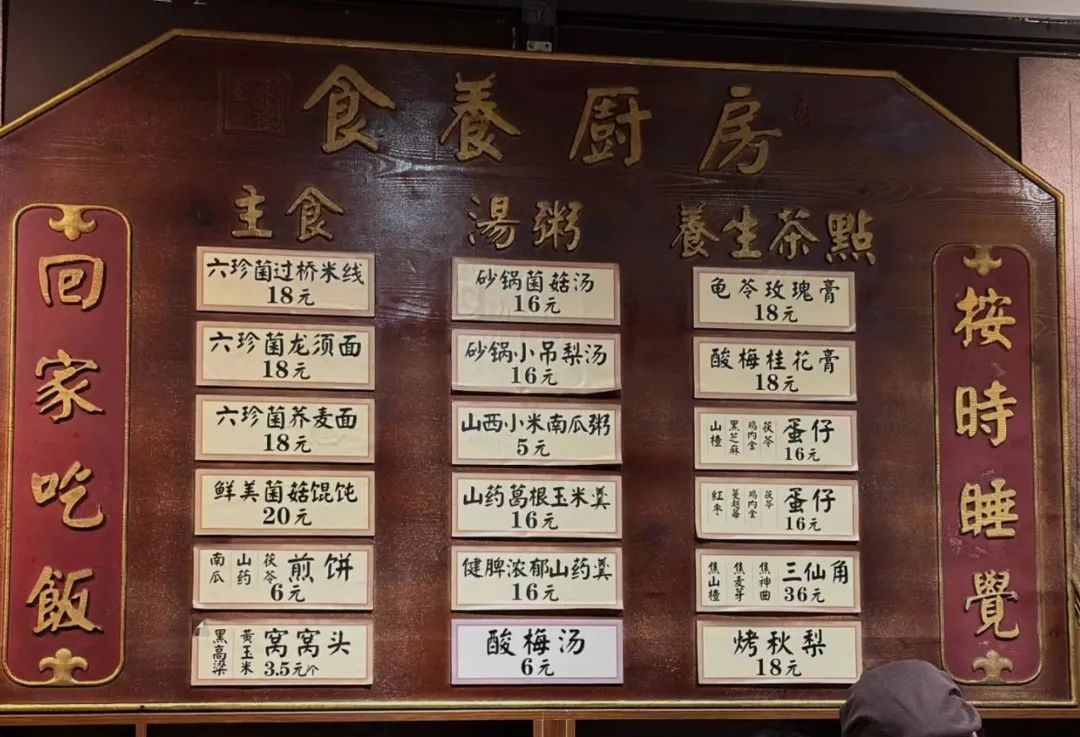 食養厨房
回家吃飯
主食
六珍菌过桥米线
18元
六珍菌龙须面
18元
六珍菌荞麦面
18元
鲜美菌菇馄饨
20元
南瓜 山药 茯苓 煎饼
6元
黑高粱 黄玉米 窝窝头
3.5元个
湯粥
砂锅菌菇汤
16元
砂锅小吊梨汤
16元
山西小米南瓜粥
5元
山药葛根玉米羹
16元
健脾浓郁山药羹
16元
酸梅汤
6元
養生茶點
龟苓玫瑰膏
18元
酸梅桂花膏
18元
山楂 黑芝麻 鸡内金 茯苓 蛋仔
16元
红枣 蔓越莓 鸡内金 茯苓 蛋仔
16元
焦山楂 焦麦芽 焦神曲 三仙角
36元
烤秋梨
18元
按時睡覺